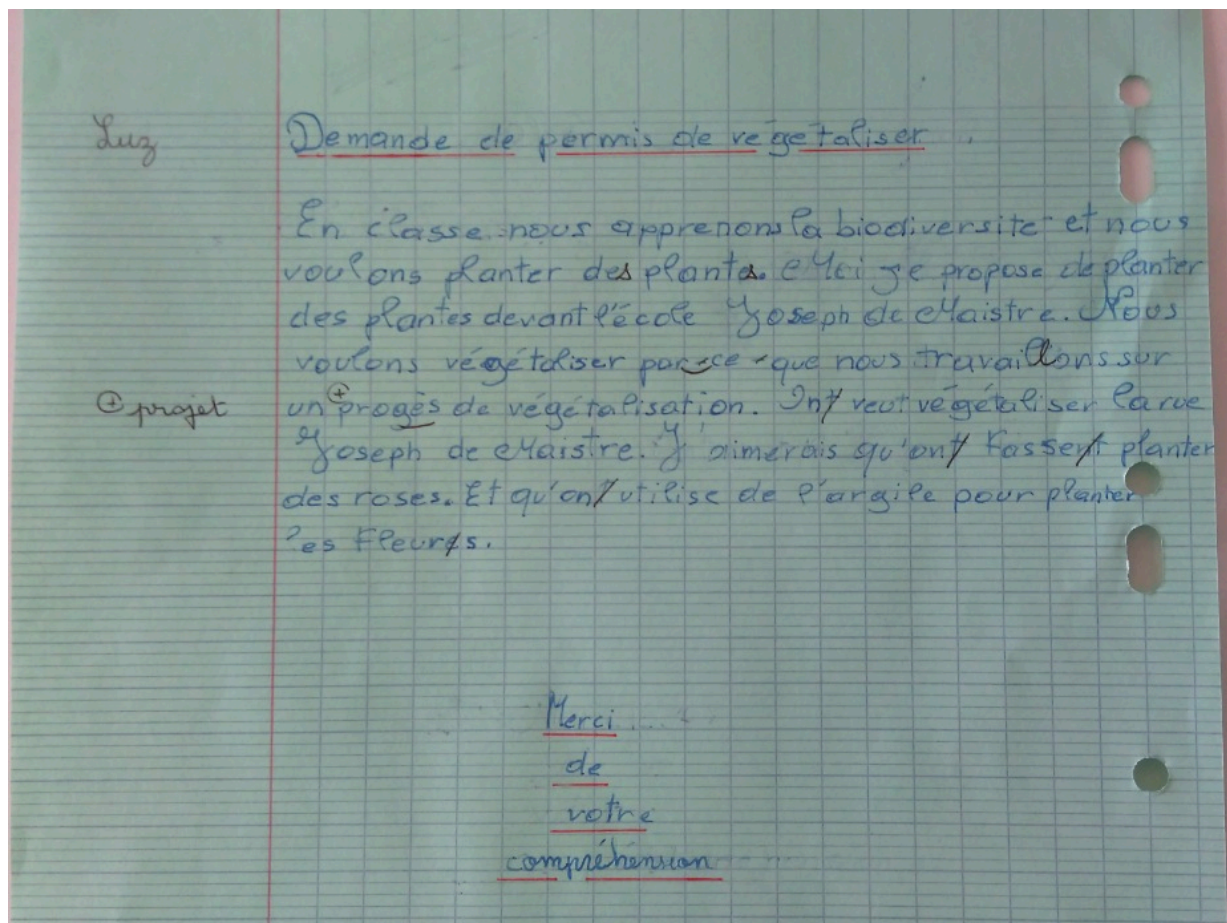 Luz
Demande de permis de végétaliser.
En classe nous apprenons la biodiversité et nous
voulons planter des plantes. Moi je propose de planter
des plantes devant l'école Joseph de Maistre. Nous
voulons végétaliser parce que nous travaillons sur
⊕ projet
un ⊕ progès de végétalisation. Ont veut végétaliser la rue
Joseph de Maistre. J'aimerais qu'ont fassent planter
des roses. Et qu'ont utilise de l'argile pour planter
les Fleurs.
Merci
de
votre
compréhension